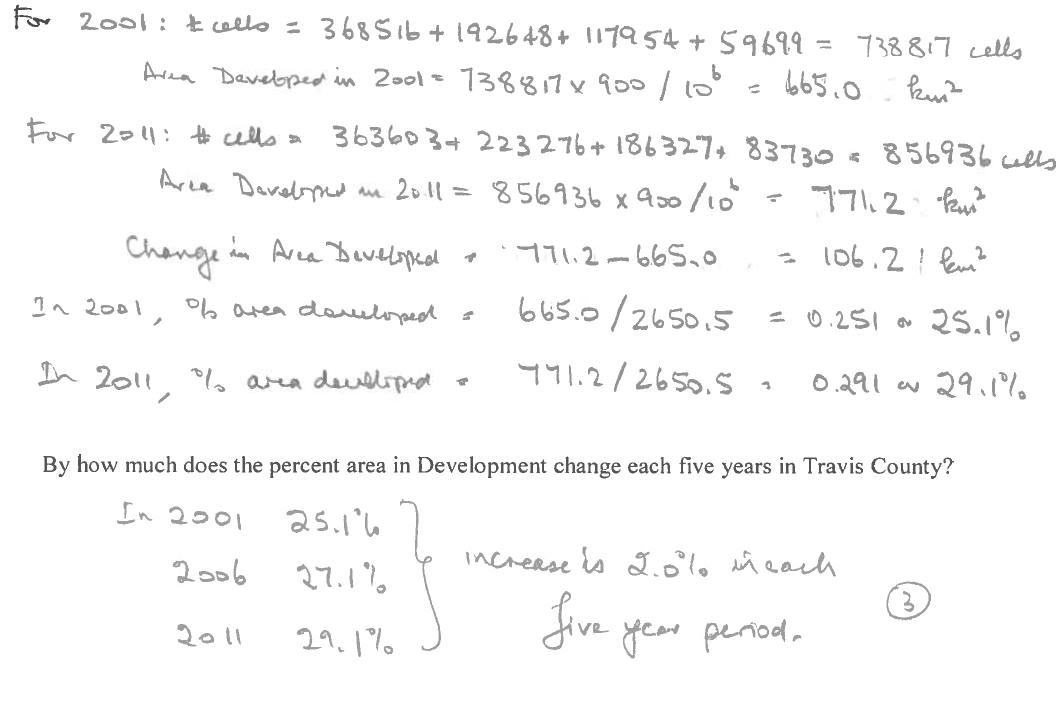 For 2001: # cells = 368516 + 192648 + 117954 + 59699 = 738817 cells
Area Developed in 2001 = 738817 x 900 / 10^6 = 665.0 km²
For 2011: # cells = 363603 + 223276 + 186327 + 83730 = 856936 cells
Area Developed in 2011 = 856936 x 900/10^6 = 771.2 km²
Change in Area Developed = 771.2 - 665.0 = 106.2 km²
In 2001, % area developed = 665.0/2650.5 = 0.251 or 25.1%
In 2011, % area developed = 771.2/2650.5 = 0.291 or 29.1%
By how much does the percent area in Development change each five years in Travis County?
In 2001 25.1%
2006 27.1%
2011 29.1%
increase is 2.0% in each
five year period.
3